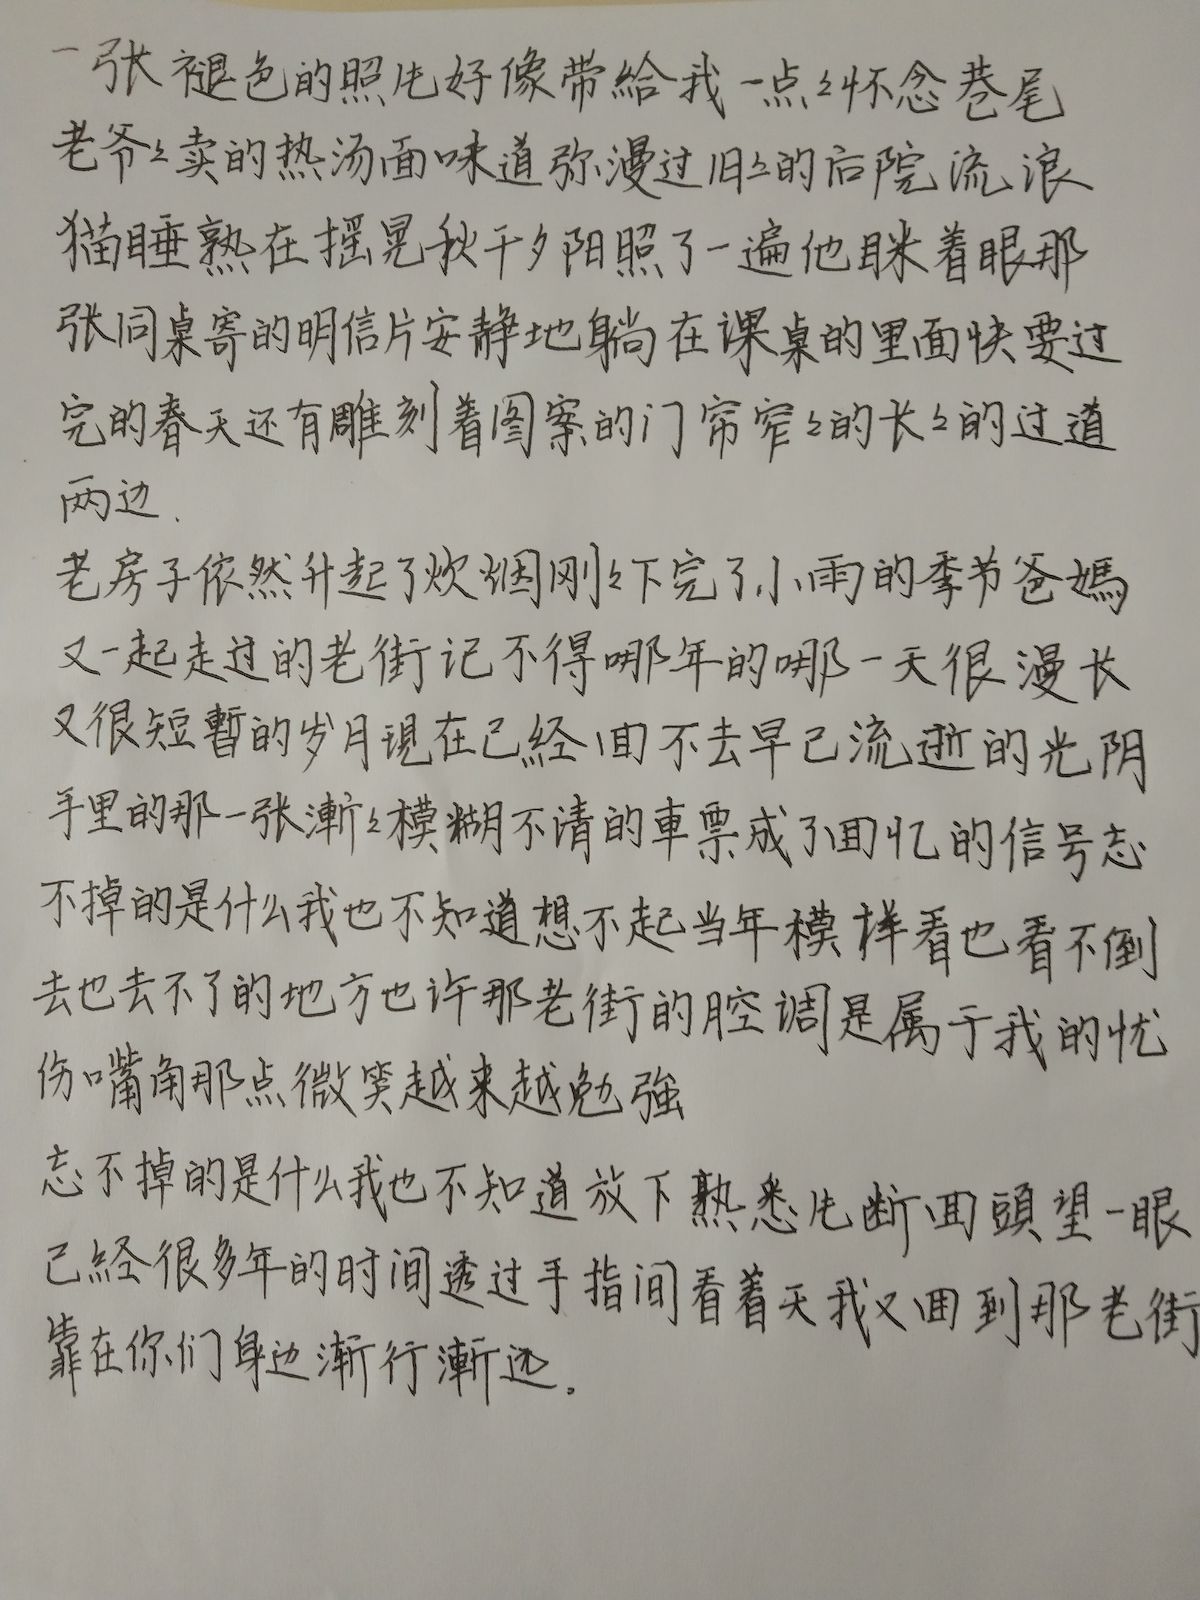 一张褪色的照片好像带給我一点々怀念巷尾
老爷々卖的热汤面味道弥漫过旧々的后院流浪
猫睡熟在摇晃秋千夕阳照了一遍他眯着眼那
张同桌寄的明信片安静地躺在课桌的里面快要过
完的春天还有雕刻着图案的门帘窄々的长々的过道
两边.
老房子依然升起了炊烟刚々下完了小雨的季节爸媽
又一起走过的老街记不得哪年的哪一天很漫长
又很短暫的岁月現在已経回不去早已流逝的光阴
手里的那一张漸々模糊不清的車票成了回忆的信号忘
不掉的是什么我也不知道想不起当年模样看也看不倒
去也去不了的地方也许那老街的腔调是属于我的忧
伤嘴角那点微笑越来越勉強
忘不掉的是什么我也不知道放下熟悉片断回頭望一眼
已経很多年的时间透过手指间看着天我又回到那老街
靠在你们身边漸行漸远.